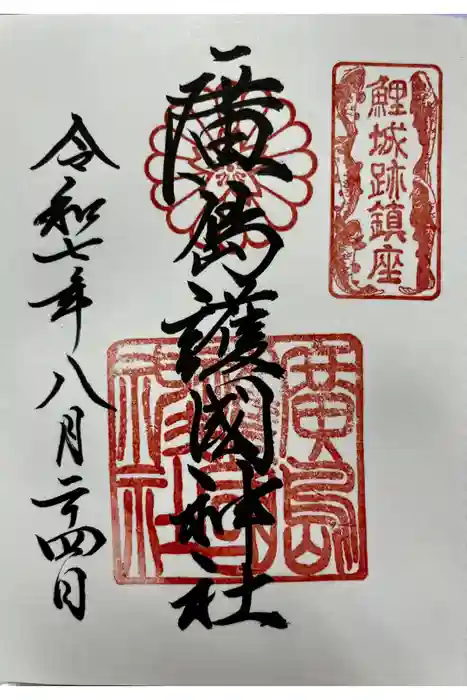 鯉城跡鎮座
廣島護國神社
廣島護國神社
令和七年八月二十四日